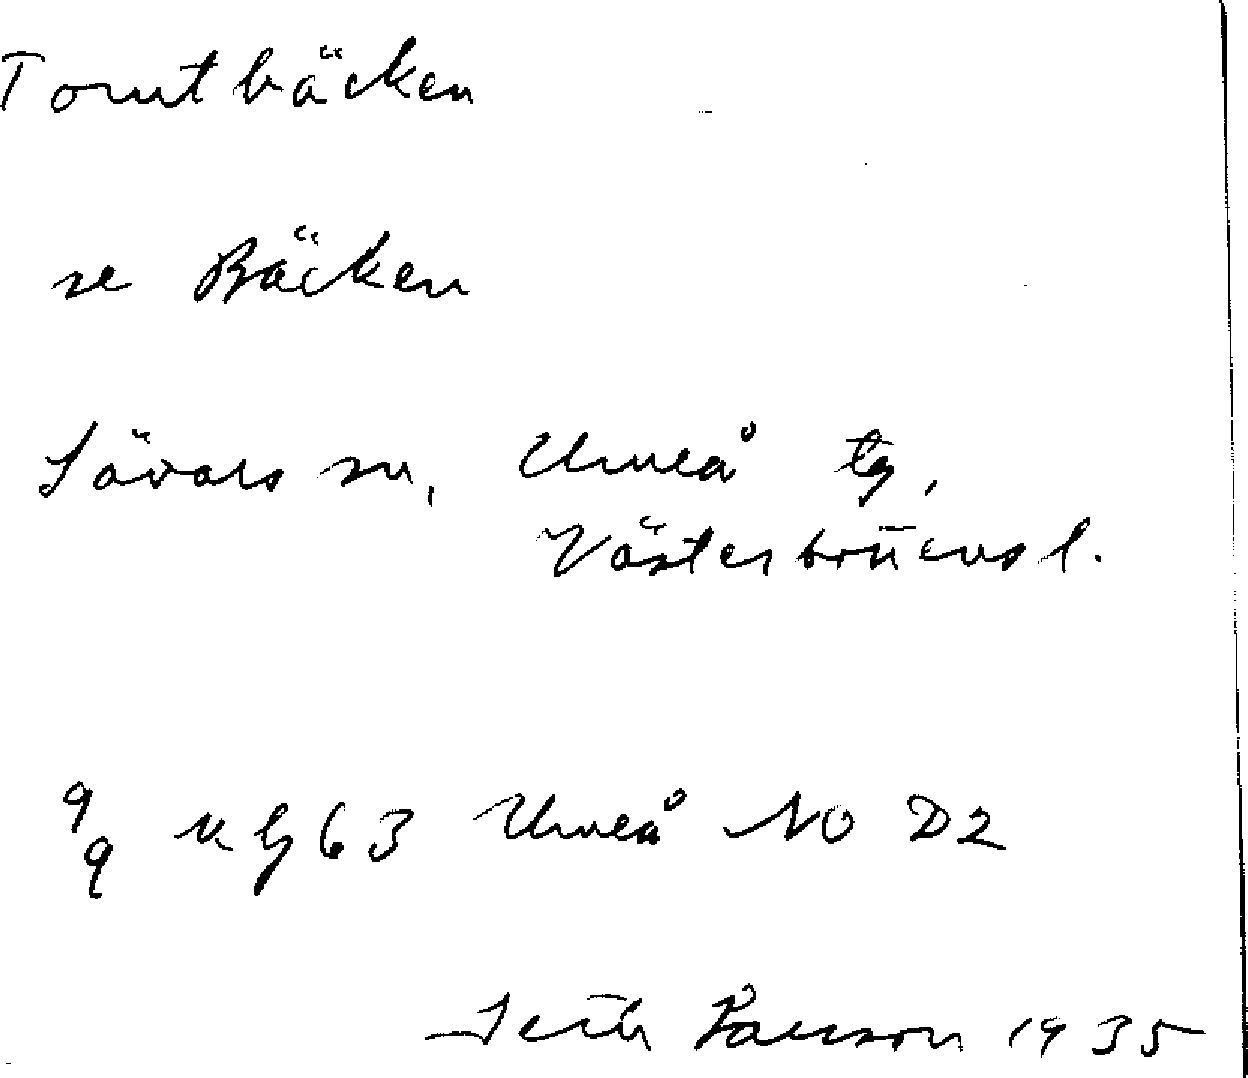 Tomtbäcken
se Bäcken
Sävars sn, Umeå tg,
Västerbottens l.
9/9 63 Umeå NO D2
Seth 1935